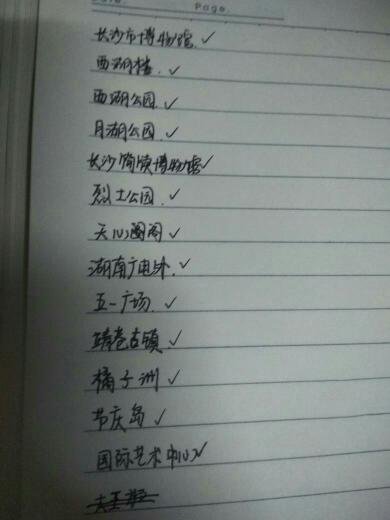 Page.
长沙市博物馆 ✓
西湖楼 ✓
西湖公园 ✓
月湖公园 ✓
长沙简牍博物馆 ✓
烈士公园 ✓
天心阁 ✓
湖南广电外 ✓
五一广场 ✓
靖港古镇 ✓
橘子洲 ✓
节庆岛 ✓
国际艺术中心 ✓